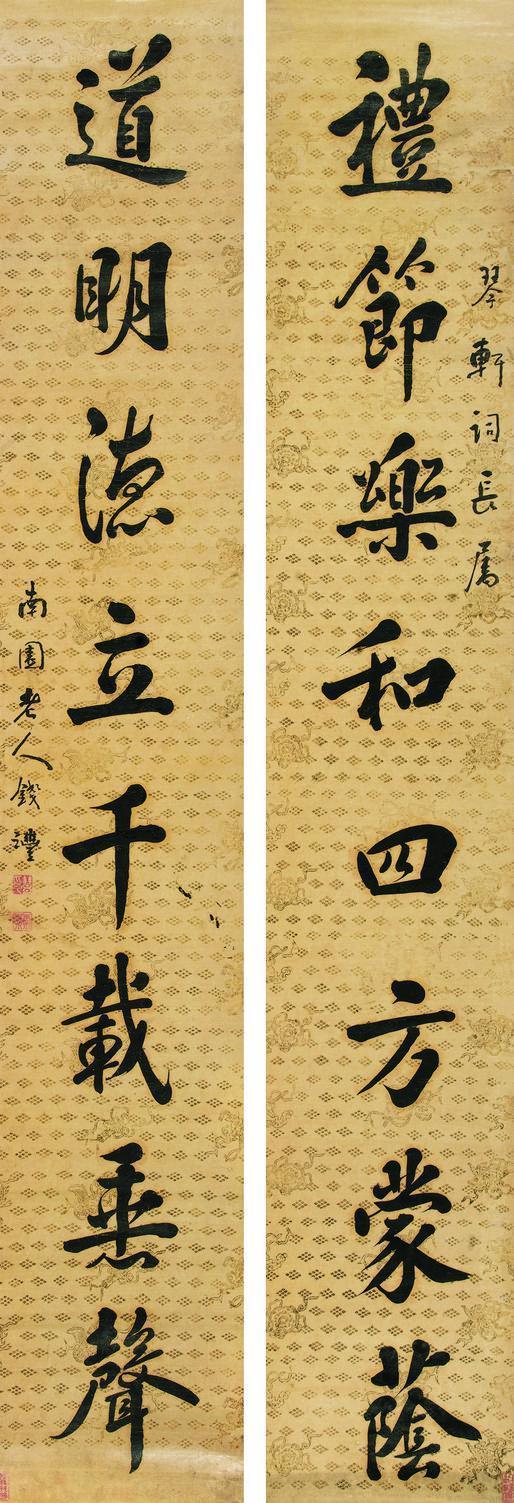 琴軒詞長屬
禮節樂和四方蒙蔭
道明德立千載垂聲
南園老人錢灃